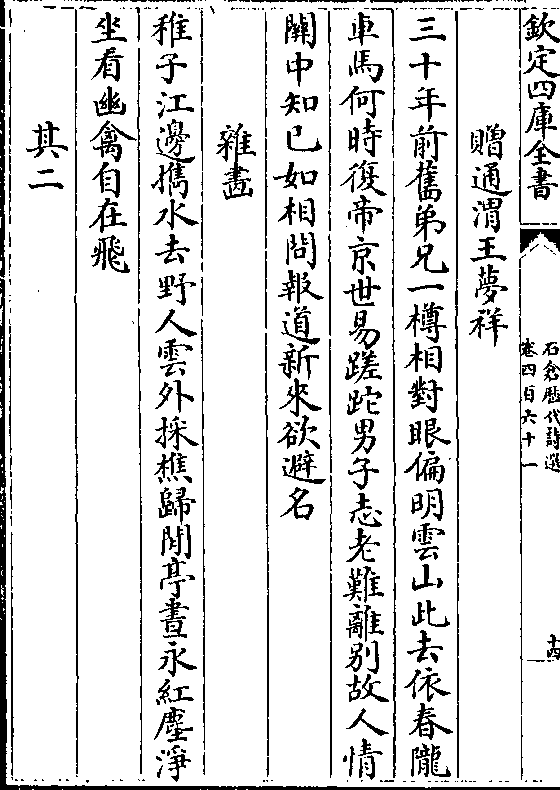 欽定四庫全書
石倉歷代詩選
卷四百六十一
十四
贈通渭王夢祥
三十年前舊弟兄一樽相對眼偏明雲山此去依春隴
車馬何時復帝京世易蹉跎男子志老難離別故人情
關中知己如相問報道新來欲避名
雜畫
稚子江邊擕水去野人雲外採樵歸閒亭晝永紅塵淨
坐看幽禽自在飛
其二